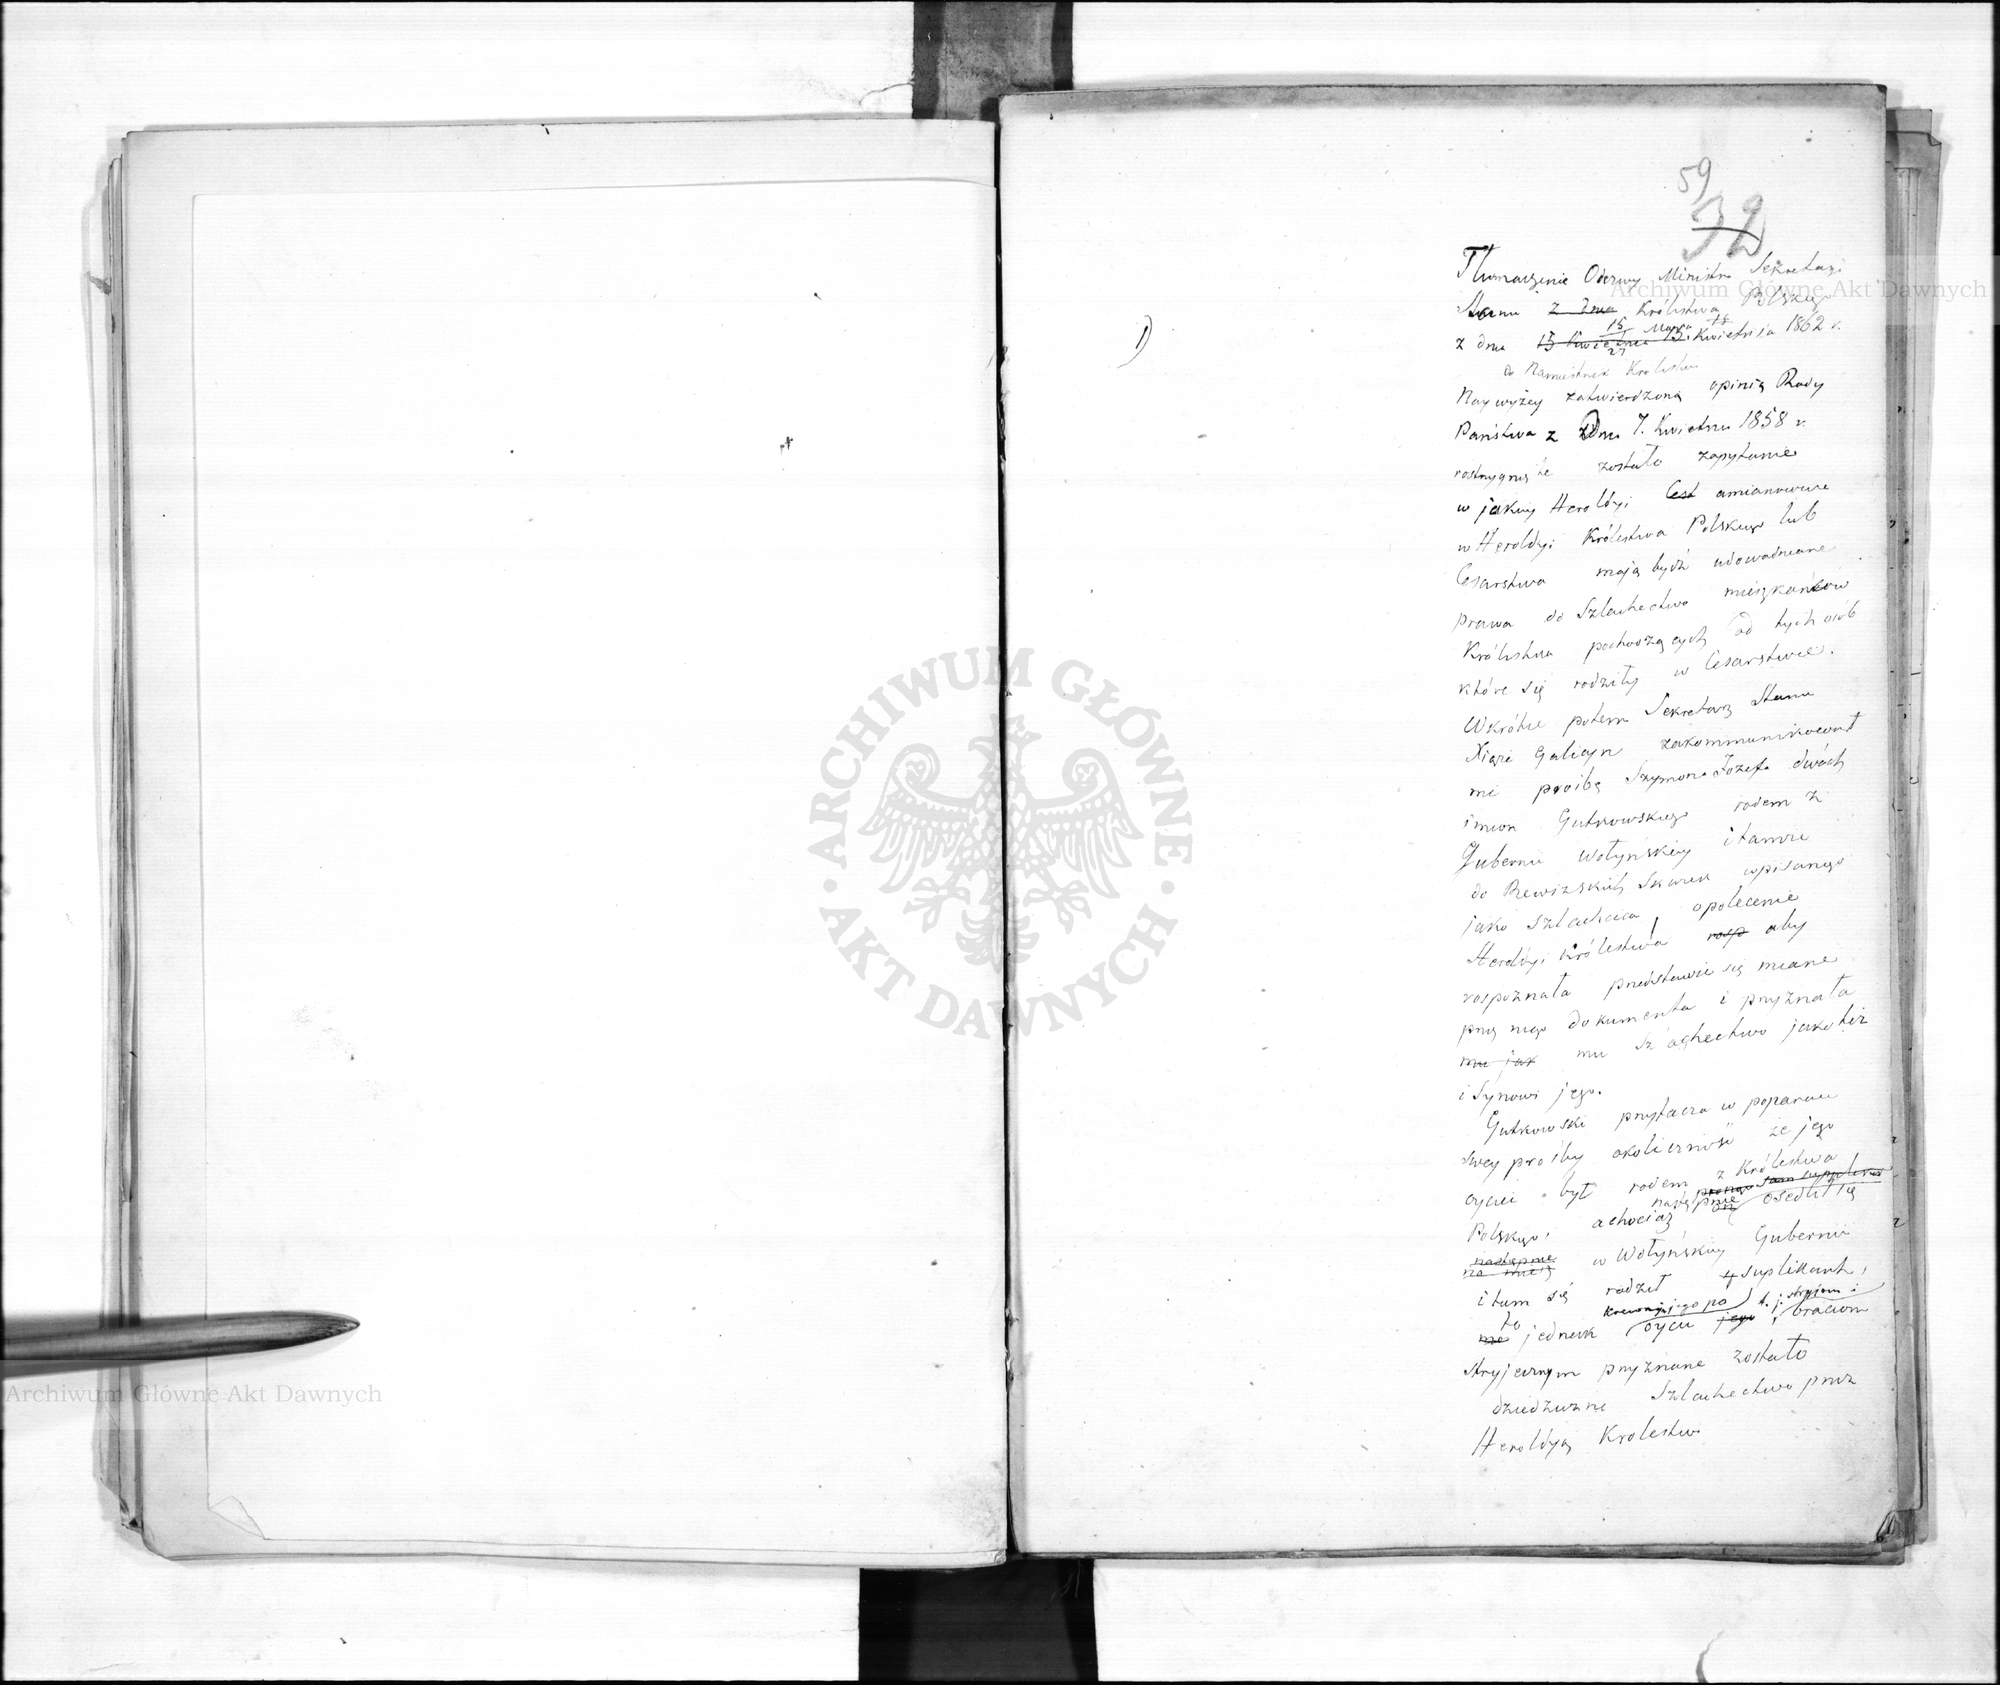 59
32
Tłumaczenie Odezwy Ministra Sekretarza
Stanu z dnia Królestwa Polskiego
z dnia 15 Kwietnia 15/27 Marca 15 Kwietnia 1862 r.
do Namiestnika Królestwa
1)
Naywyżey zatwierdzoną opinią Rady
Państwa z Dnia 7. Kwietnia 1858 r.
rostrzygnięte zostało zapytanie
w jakiey Heroldyi Cest a mianowicie
w Heroldyi Królestwa Polskiego lub
Cesarstwa mają bydź udowadniane
prawa do Szlachectwa mieszkańców
Królestwa pochodzących od tych osób
które się rodziły w Cesarstwie.
Wkrótce potem Sekretarz Stanu
Xiąże Galicyn zakommunikował
mi prośbę Szymona Józefa dwóch
imion Gutkowskiego rodem z
Gubernii Wołyńskiey i tamże
do Rewizskich Skazek wpisanego
jako szlachcica, o polecenie
Heroldyi Królestwa rosp aby
rospoznała przedstawić się miane
przez niego dokumenta i przyznała
mu jak mu Szlachectwo jako też
i Synowi jego.
Gutkowski przytacza w poparciu
swey prośby okoliczność że jego
oyciec był rodem z Królestwa
Polskiego, a chociaż następnie on osedlił się
następnie w Wołyńskiey Gubernii
i tam się rodził suplikant,
to jednak krewnym jego po oycu jego t. j. stryjom i braciom
stryjecznym przyznane zostało
dziedziczne Szlachectwo przez
Heroldyą Królestwa
Archiwum Główne Akt Dawnych
Archiwum Główne Akt Dawnych
ARCHIWUM GŁÓWNE
AKT DAWNYCH